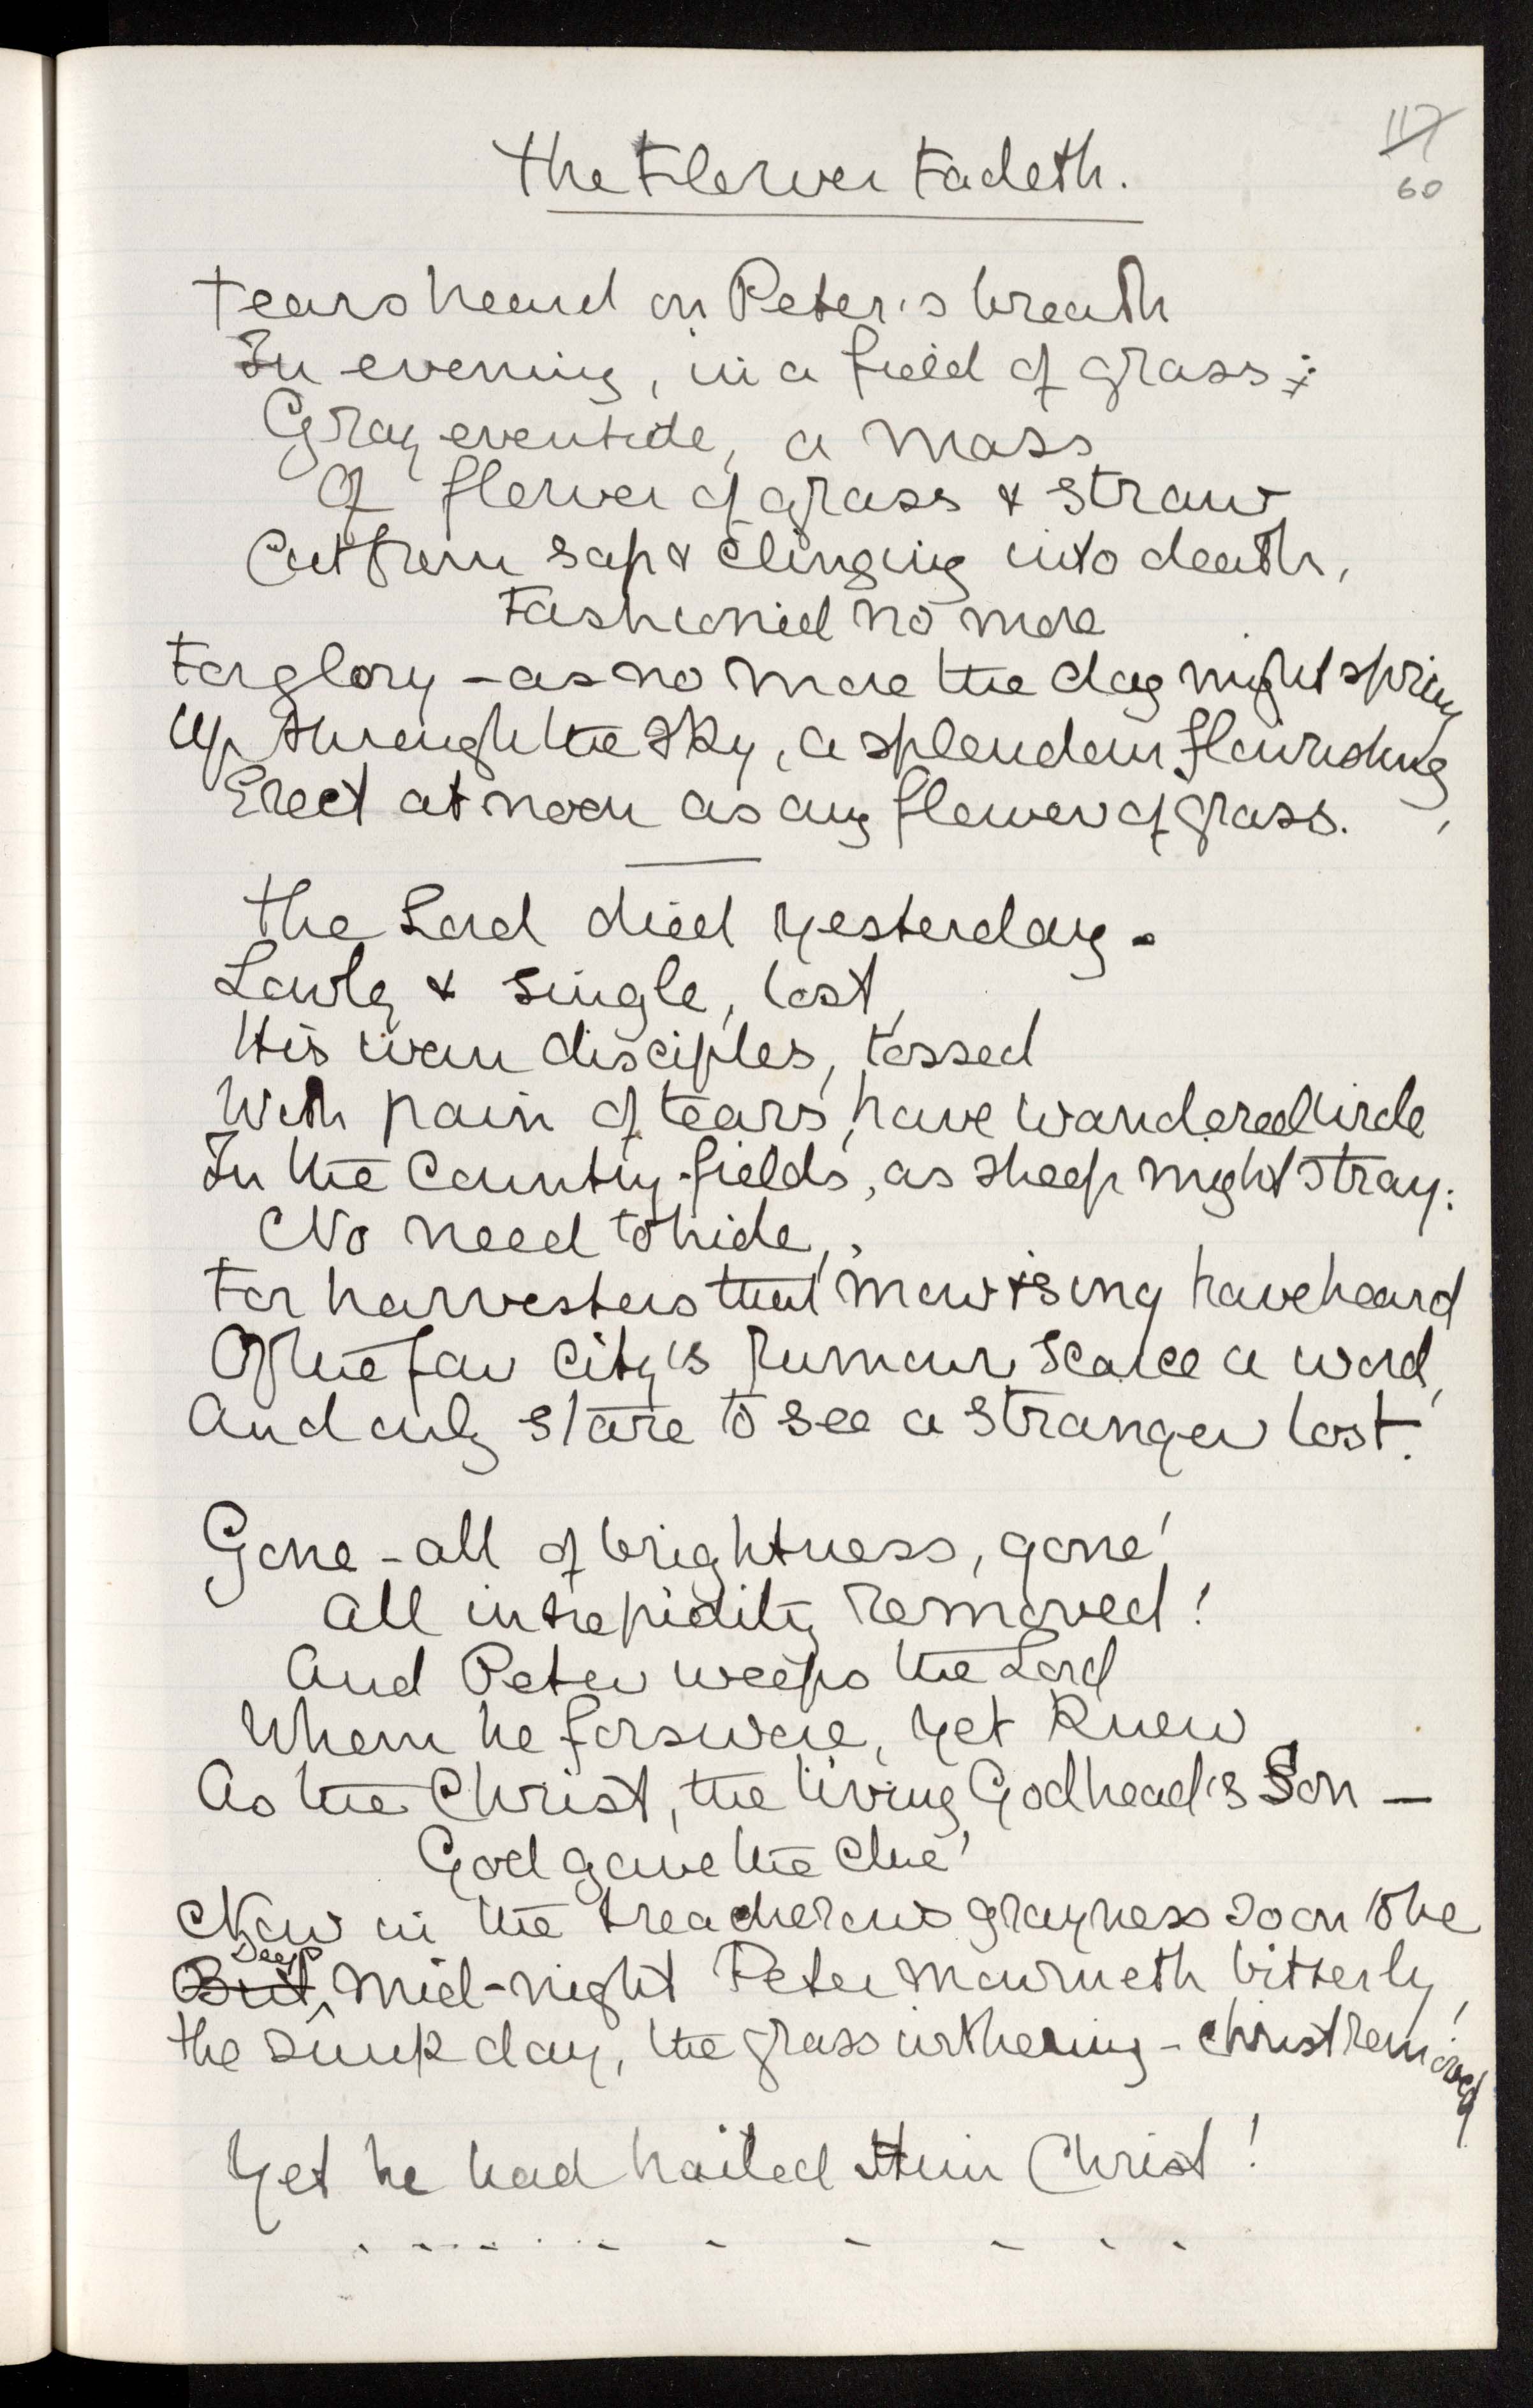 117
60
The Flower Fadeth.
Tears heard on Peter's breath
In evening, in a field of grass;
Gray eventide, a mass
Of flower of grass & straw
Cut from sap & clinging into death,
Fashioned no more
For glory – as no more the day might spring
Up through the sky, a splendour flourishing,
Erect at noon as any flower of grass.
The Lord died yesterday.
Lowly & single, lost,
His wan disciples, tossed
With pain of tears, have wandered wide
In the country-fields, as sheep might stray:
No need to hide,
For harvesters that mow & sing have heard
Of the far city's rumour scarce a word,
And only stare to see a stranger lost.
Gone – all of brightness, gone!
All intrepidity removed!
And Peter weeps the Lord
Whom he forswore, yet knew
As the Christ, the living Godhead's Son —
God gave the clue!
Now in the treacherous grayness soon to be
Deep
But mid-night Peter mourneth bitterly,
The sunk day, the grass withering – Christ removed
Yet he had hailed Him Christ!